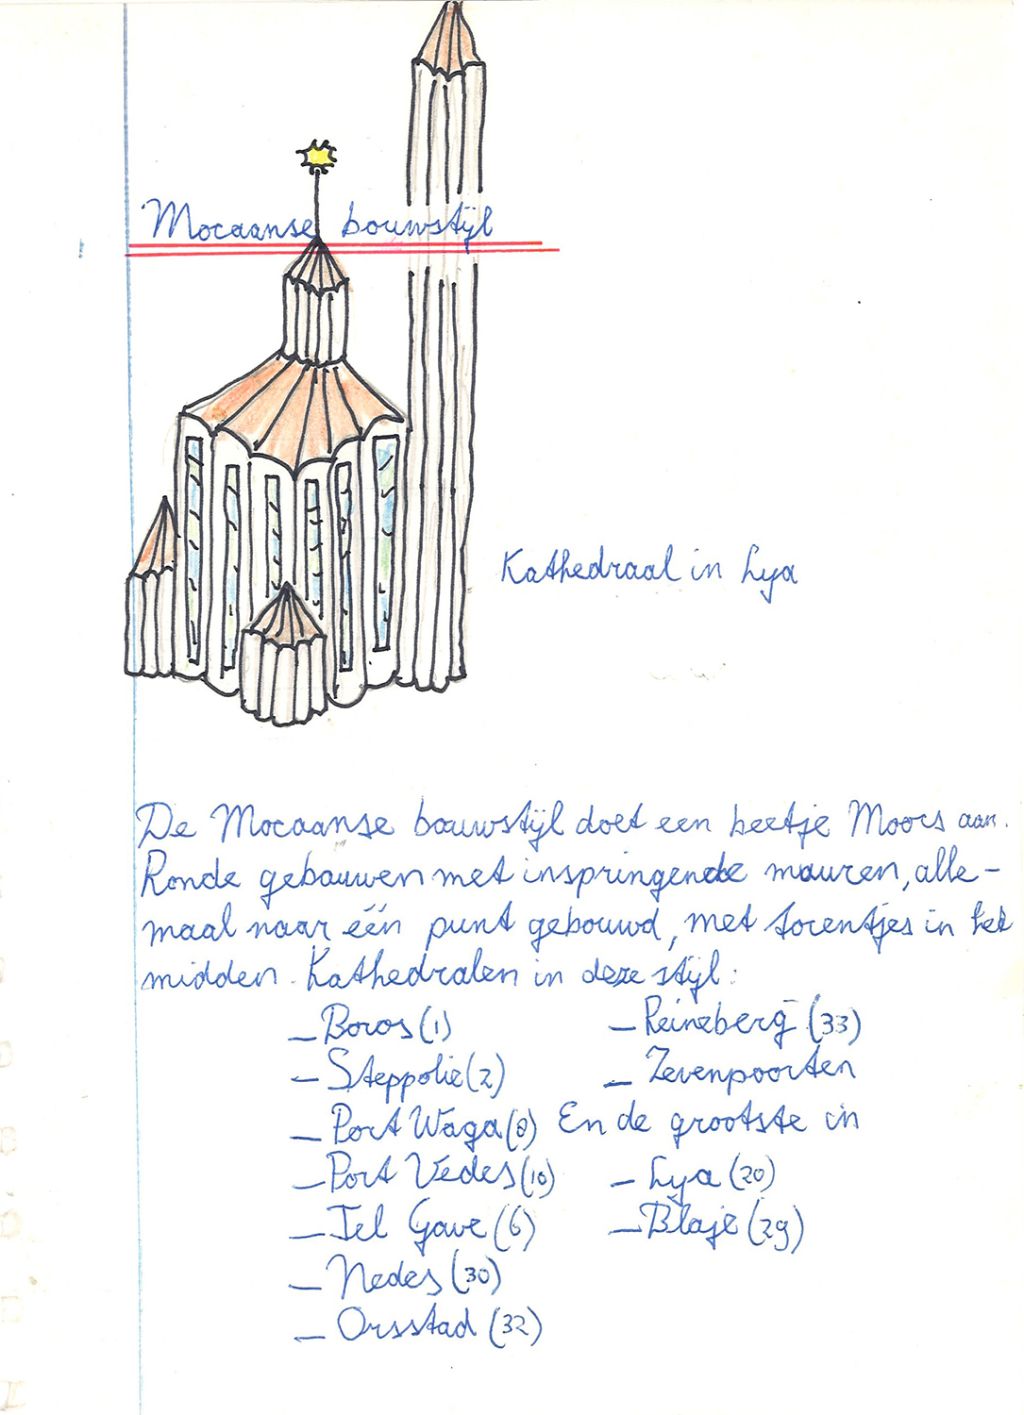 Mocaanse bouwstijl
Kathedraal in Lya
De Mocaanse bouwstijl doet een beetje Moors aan.
Ronde gebouwen met inspringende muren, alle-
maal naar één punt gebouwd, met torentjes in het
midden. Kathedralen in deze stijl:
- Boros (1)
- Steppolie (2)
- Port Waga (8)
- Port Vedes (10)
- Jel Gave (6)
- Nedes (30)
- Orsstad (32)
- Reineberg (33)
- Zevenpoorten
En de grootste in
- Lya (20)
- Blaje (29)